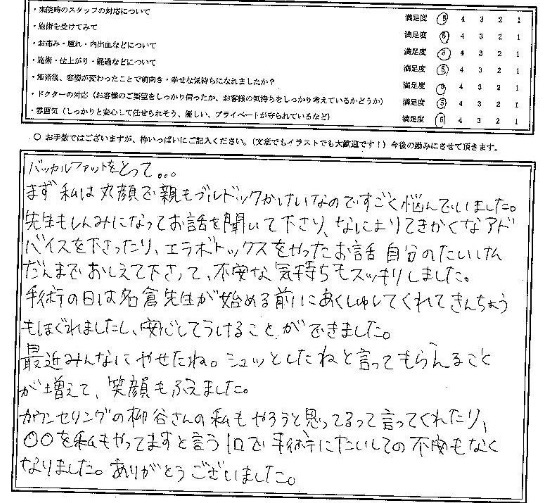 ・来院時のスタッフの対応について 満足度 5 4 3 2 1
・施術を受けてみて 満足度 5 4 3 2 1
・お痛み・腫れ・内出血などについて 満足度 5 4 3 2 1
・施術・仕上がり・経過などについて 満足度 5 4 3 2 1
・施術後、容姿が変わったことで前向き・幸せな気持ちになれましたか? 満足度 5 4 3 2 1
・ドクターの対応(お客様のご要望をしっかり伺ったか、お客様の気持ちをしっかり考えているかどうか) 満足度 5 4 3 2 1
・雰囲気(しっかりと安心して任せられそう、優しい、プライベートが守られているなど) 満足度 5 4 3 2 1
○ お手数ではございますが、枠いっぱいにご記入ください。(文章でもイラストでも大歓迎です!)今後の励みにさせて頂きます。
バッカルファットをとって。。。
まず私は丸顔で親もブルドックかけいなのですごく悩んでいました。
先生もしんみになってお話を聞いて下さり、なによりてきかくなアド
バイスを下さったり、エラボトックスをやったお話 自分のたいけん
だんまでおしえて下さって、不安な気持ちもスッキリしました。
手術の日は名倉先生が始める前にあくしゅしてくれてきんちょう
もほぐれましたし、安心してうけることができました。
最近みんなにやせたね。シュッとしたねと言ってもらえること
が増えて、笑顔もふえました。
カウンセリングの柳谷さんの私もやろうと思ってるって言ってくれたり、
○○を私もやってますと言う一口で手術にたいしての不安もなく
なりました。ありがとうございました。